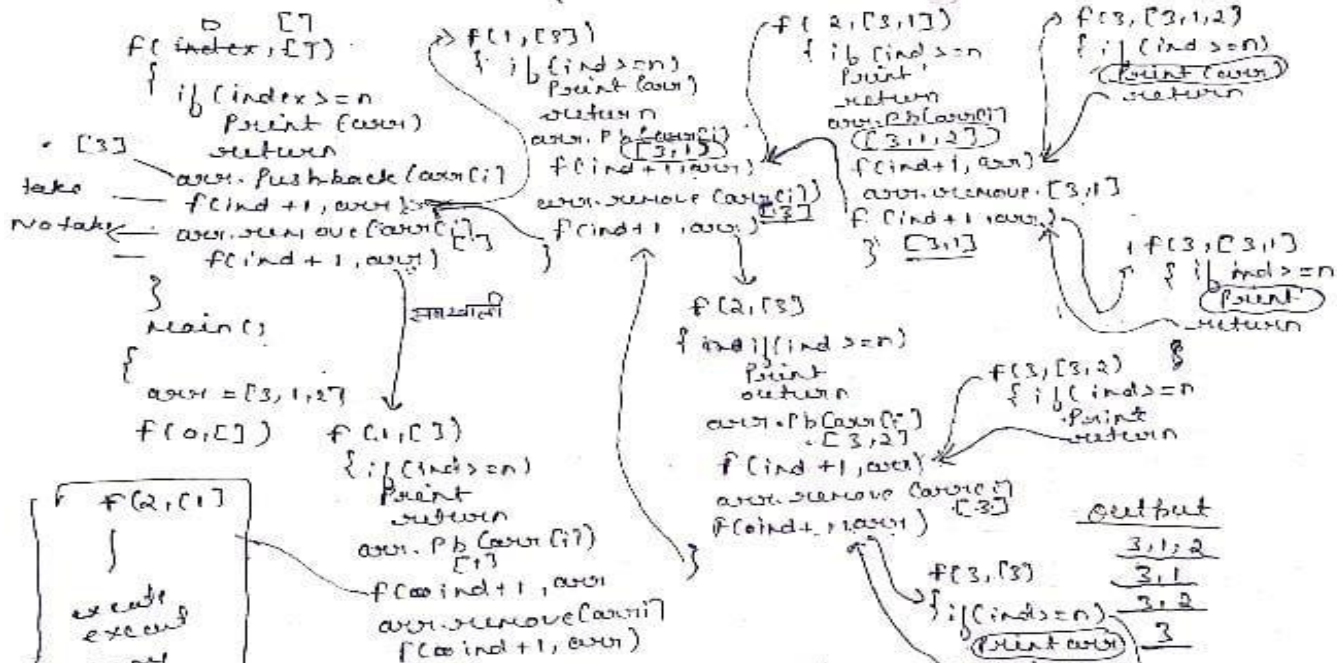 0 []
f( index, [])
{
if (index >= n
Print (arr)
return
• [3]
arr. Push-back (arr[i]
take
f(ind +1, arr)
No take
arr.remove(arr[i]
[ ]
f(ind + 1, arr)
}
main()
{
arr = [3, 1, 2]
f(0, [])
f(1, [3])
{ if (ind >= n)
Print (arr)
return
arr. Pb(arr[i]
[3,1]
f(ind +1, arr)
arr.remove (arr[i])
[3]
f(ind+1, arr)
}
f( 2, [3,1])
{ if (ind >= n)
Print
return
arr.Pb(arr[i]
[3,1,2]
f(ind+1, arr)
arr.remove. [3,1]
f (ind+1, arr)
} [3,1]
f(3, [3,1,2)
{ if (ind >= n)
Print (arr)
return
f(3, [3,1]
{ if ind >= n
Print
return
}
f(2, [3]
{ if (ind >= n)
Print
return
arr.Pb(arr[i]
[3,2]
f (ind +1, arr)
arr.remove (arr[i]
[3]
f(ind+1, arr)
}
f(3, [3,2)
{ if (ind >= n
Print
return
f(3, [3]
{ if (ind >= n)
Print arr
f (1, [ ]
{ if (ind >= n)
Print
return
arr. Pb (arr [i]
[1]
f( ind+1, arr
arr.remove(arri]
f( ind+1, arr)
f(2, [1]
execute
execut
output
3,1,2
3,1
3,2
3